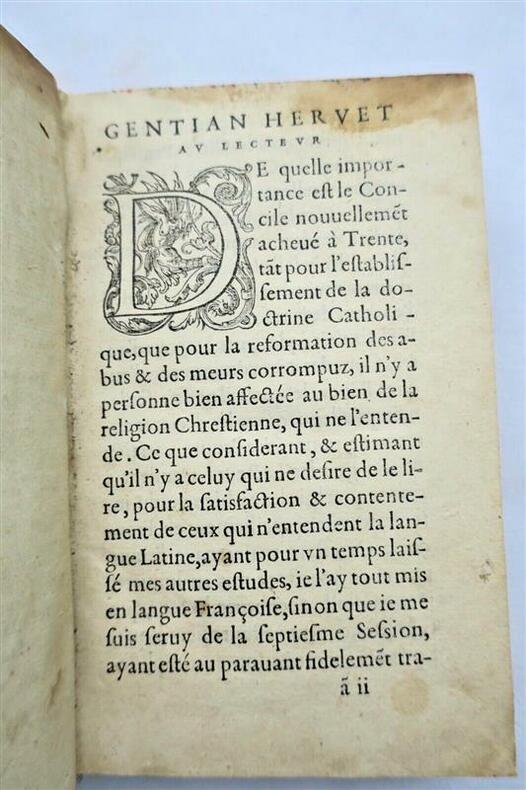 GENTIAN HERVET
AV LECTEVR
DE quelle impor-
tance eſt le Con-
cile nouuellemẽt
acheué à Trente,
tãt pour l'eſtabliſ-
ſement de la do-
ctrine Catholi-
que, que pour la reformation des a-
bus & des meurs corrompuz, il n'y a
perſonne bien affectée au bien de la
religion Chreſtienne, qui ne l'enten-
de. Ce que conſiderant, & eſtimant
qu'il n'y a celuy qui ne deſire de le li-
re, pour la ſatisfaction & contente-
ment de ceux qui n'entendent la lan-
gue Latine, ayant pour vn temps laiſ-
ſé mes autres eſtudes, ie l'ay tout mis
en langue Françoiſe, ſinon que ie me
ſuis ſeruy de la ſeptieſme Seſsion,
ayant eſté au parauant fidelemẽt tra-
ã ii